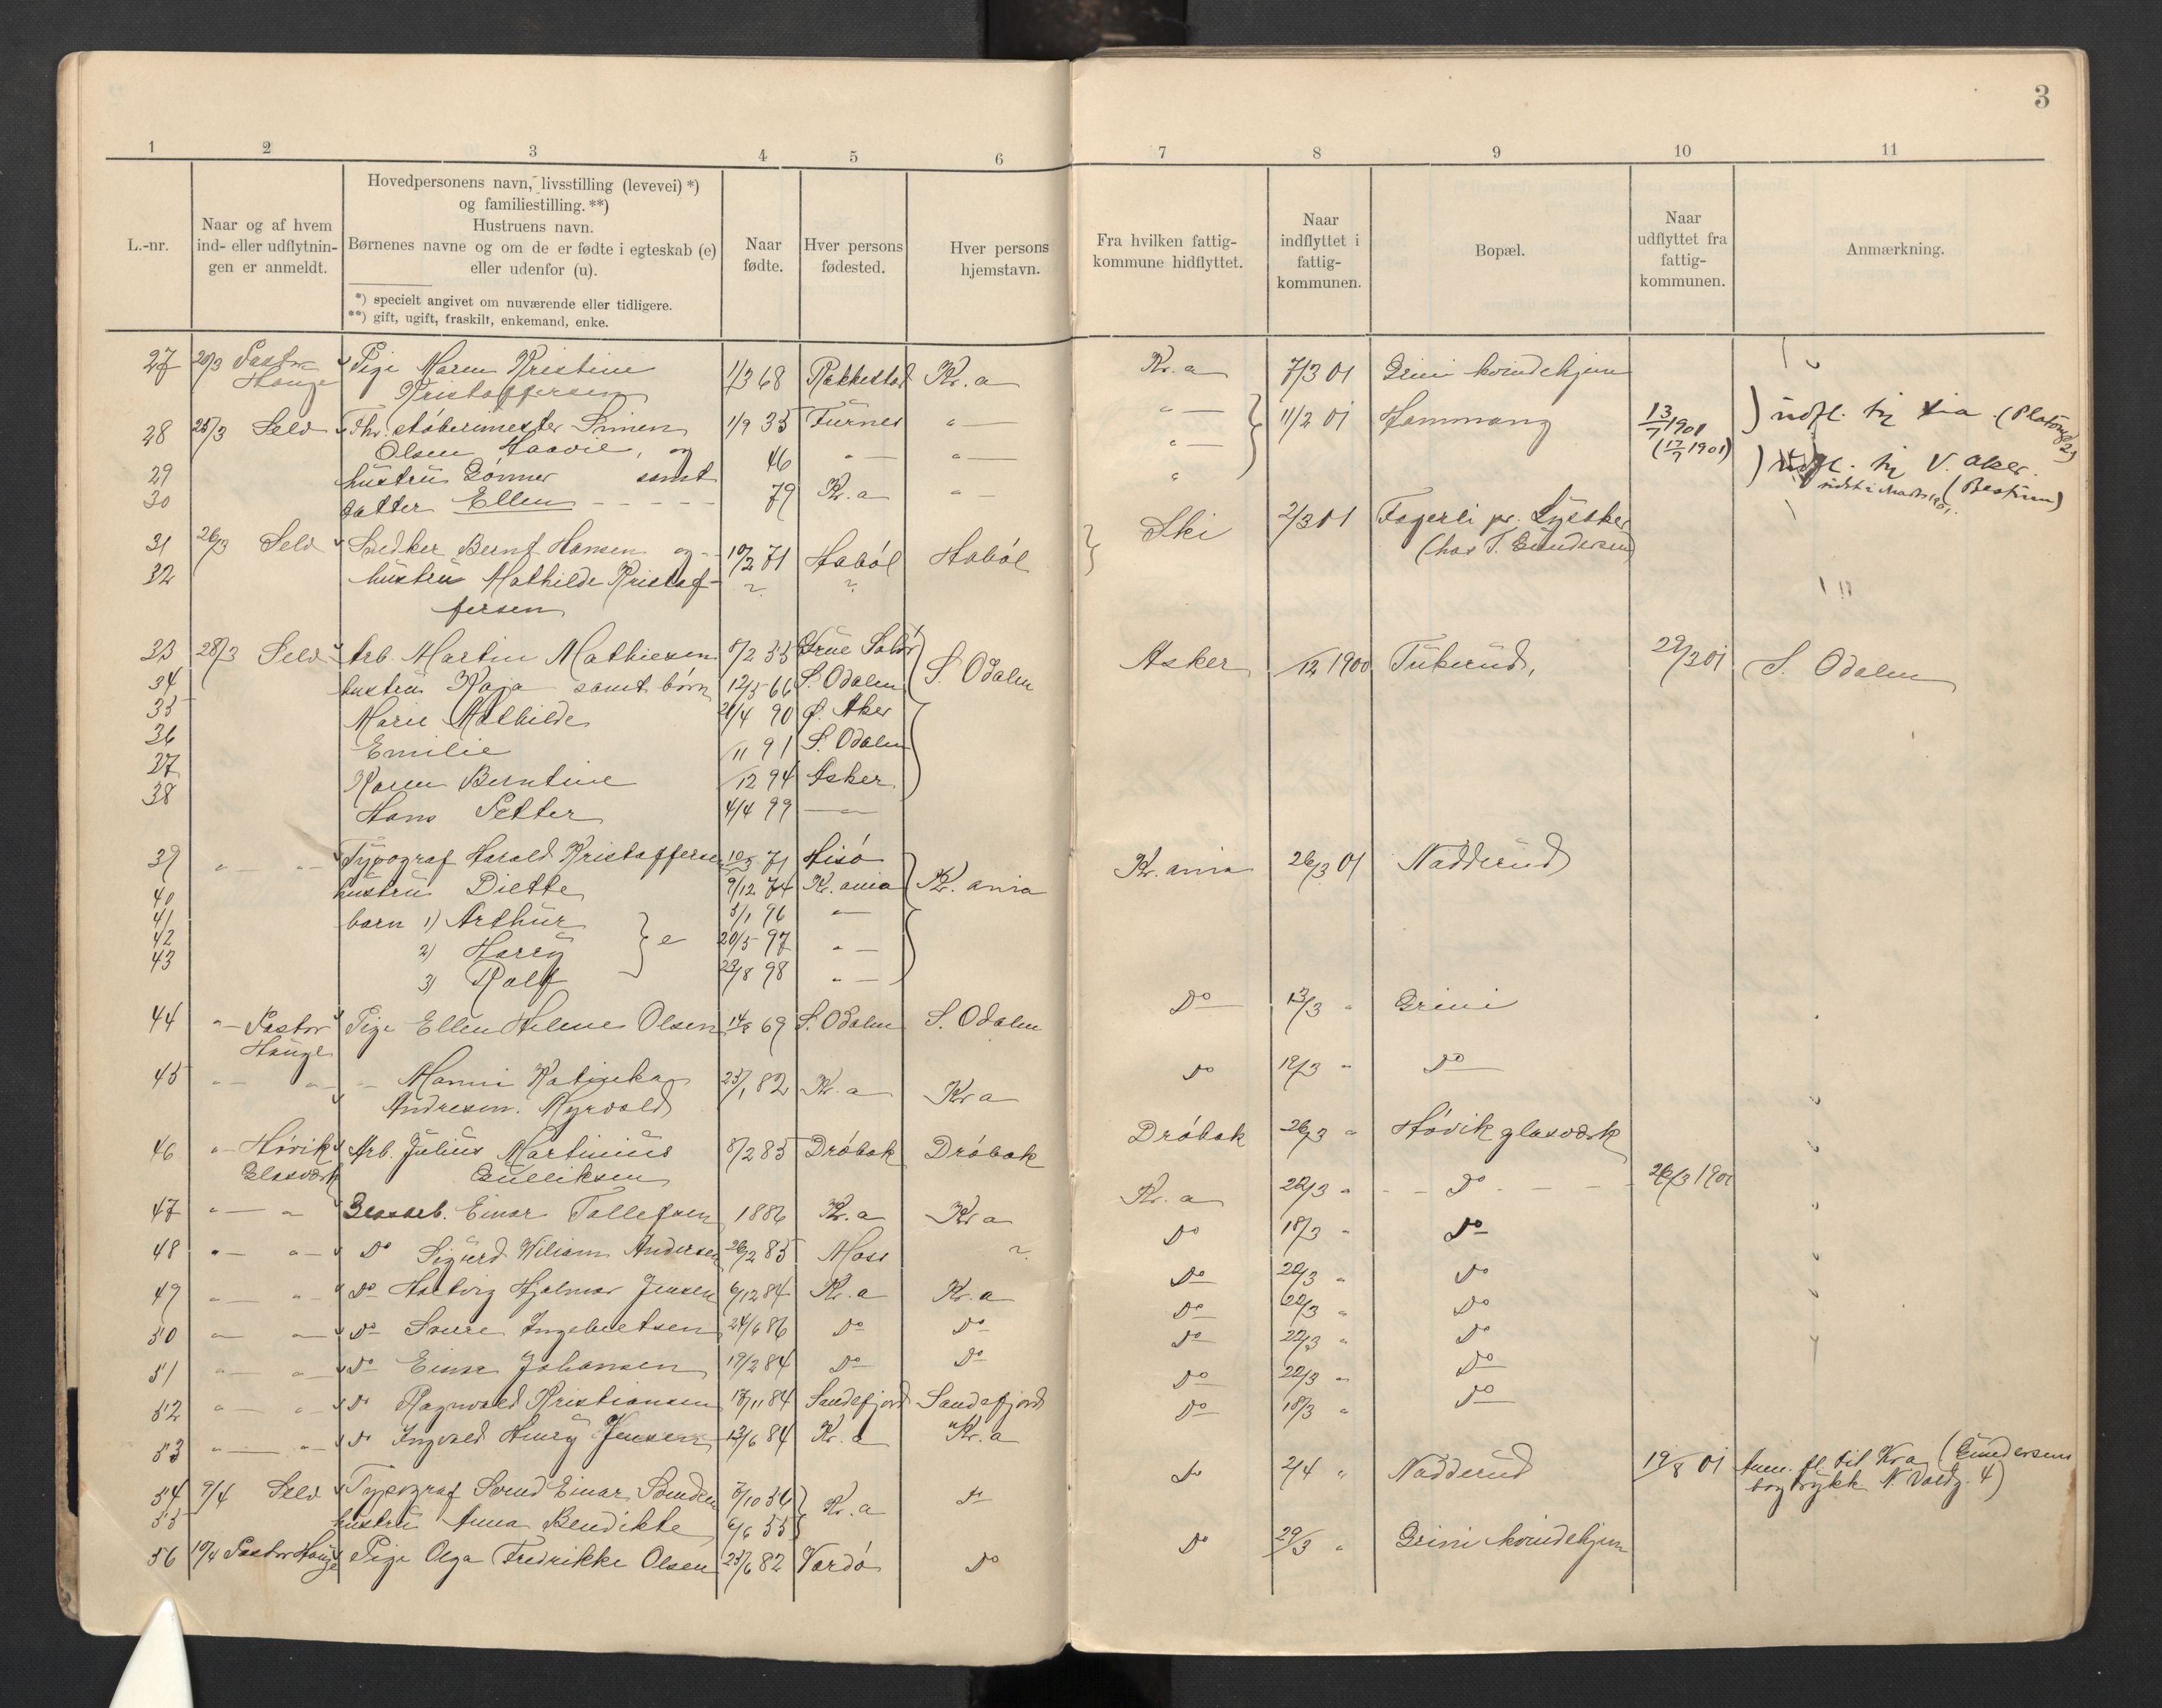 3
1 2 3 4 5 6 7 8 9 10 11
L.-nr.
Naar og af hvem
ind- eller udflytnin-
gen er anmeldt.
Hovedpersonens navn, livsstilling (levevei) *)
og familiestilling. **)
Hustruens navn.
Børnenes navne og om de er fødte i egteskab (e)
eller udenfor (u).
*) specielt angivet om nuværende eller tidligere.
**) gift, ugift, fraskilt, enkemand, enke.
Naar
fødte.
Hver persons
fødested.
Hver persons
hjemstavn.
Fra hvilken fattig-
kommune hidflyttet.
Naar
indflyttet i
fattig-
kommunen.
Bopæl.
Naar
udflyttet fra
fattig-
kommunen.
Anmærkning.
27 20/3 Pastor Pige Maren Kristine 1/3 68 Rakkestad Kr.a Kr.a 7/3 01 Grini kvindehjem
Hauge Kristoffersen
28 25/3 Selv Fhv. støberimester Simen 1/9 35 Furnes " — " — 11/2 01 Hammang 13/7 1901 ) udfl. til Kra (Platougt. 2)
Olsen Haavie, og 46 " — " — " — (17/7 1901)
29 hustru Gønner samt ) udfl. til V. Aker. (Bestum)
30 datter Ellen - - - - 79 Kr.a " — "
31 26/3 Selv Snedker Bernt Hansen og 10/2 71 Høbøl Høbøl } Ski 2/3 01 Fagerli pr. Lysaker
(hos T. Gundersen)
32 hustru Mathilde Kristof- ? ?
fersen
33 28/3 Selv Arb. Martin Mathiesen 8/2 55 Grue Solør S. Odalen Asker /12 1900 Tukerud, 29/3 01 S. Odalen
34 hustru Kaja samt børn 12/5 66 S. Odalen
35 Marie Mathilde 21/4 90 Ø. Aker
36 Emilie /11 91 S. Odalen
37 Karen Berntine /12 94 Asker
38 Hans Petter 4/4 99 —
39 " — " — Typograf Harald Kristoffersen 10/3 71 Hisø Kr.ania Kr.ania 26/3 01 Nadderud
40 hustru Diette 9/12 74 Kr.ania
41 barn 1) Arthur 5/1 96 " —
42 2) Harry } e 20/5 97 " —
43 3) Ralf 23/8 98 " —
44 " — Pastor Pige Ellen Helene Olsen 14/8 69 S. Odalen S. Odalen Do 13/3 " Grini
Hauge
45 " — " — " — Manni Katinka 25/1 82 Kr.a Kr a Do 19/3 " Do
Andresen. Myrvold
46 " — Høvik Arb. Julius Martinius 8/2 85 Drøbak Drøbak Drøbak 26/3 " Høvik glasværk
Glasværk Gulliksen
47 " — " Glasarb. Einar Tollefsen 1886 Kr.a Kr a Kr.a 22/3 " - - Do - - - 26/3 1901
48 " — " — Do Sigurd Wiliam Andersen 26/2 85 Moss ? Do 18/3 " Do
49 " — " — Do Hartvig Hjalmar Jensen 6/12 84 Kr.a Kr.a Do 22/3 " Do
50 " — " — Do Sverre Ingebretsen 24/6 86 Do Do Do 22/3 " Do
51 " — " — Do Einar Johansen 19/2 84 Do Do Do 22/3 " Do
52 " — " — Do Ragnvald Kristiansen 18/11 84 Sandefjord Sandefjord Do 22/3 " Do
53 " — " — Do Ingvald Henry Jensen 13/6 84 Kr.a Kr.a Do 18/3 " Do
54 9/4 Selv Typograf Svend Einar Svendsen 8/10 56 } Kr.a Do Do 2/4 " Nadderud 19/8 01 Anm. fl. til Kra (Gundersens
bogtrykk. N. Voldg. 4)
55 hustru Anna Bendikte 6/6 55
56 10/4 Pastor Hauge Pige Olga Fredrikke Olsen 25/6 82 Vardø Do Do 29/3 " Grini kvindehjem